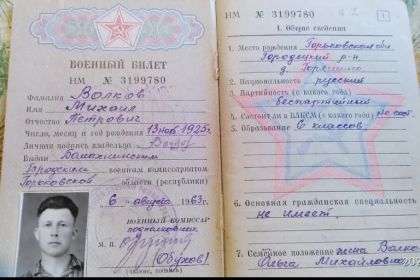 ВОЕННЫЙ БИЛЕТ
НМ № 3199780
Фамилия Волков
Имя Михаил
Отчество Петрович
Число, месяц и год рождения 13 нояб 1925 г.
Личная подпись владельца
Выдан Балахнинским
Городским военным комиссариатом
Горьковской области (республики)
6 августа 1963 г.
М. П.
ВОЕННЫЙ КОМИССАР
подполковник
(Обухов)
(звание, подпись)
НМ № 3199780
1
I. Общие сведения
1. Место рождения Горьковская обл
Городецкий р-н
д.
2. Национальность русский
3. Партийность (с какого года)
беспартийный
4. Состоит ли в ВЛКСМ (с какого года) не сост.
5. Образование 6 классов
6. Основная гражданская специальность
не имеет.
7. Семейное положение жена Волко
Ольга Михайловна